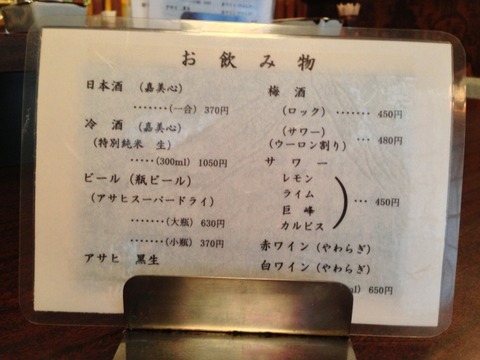 お飲み物
日本酒 (嘉美心)
・・・・・・・(一合) 370円
冷 酒 (嘉美心)
(特別純米 生)
・・・・・(300ml) 1050円
ビール (瓶ビール)
(アサヒスーパードライ)
・・・・・・・(大瓶) 630円
・・・・・・・(小瓶) 370円
アサヒ 黒生
梅 酒
(ロック)・・・・・・・ 450円
(サワー)
(ウーロン割り) ・・・ 480円
サ ワ ー
レモン
ライム
巨 峰
カルピス
・・・ 450円
赤ワイン (やわらぎ)
白ワイン (やわらぎ)
650円